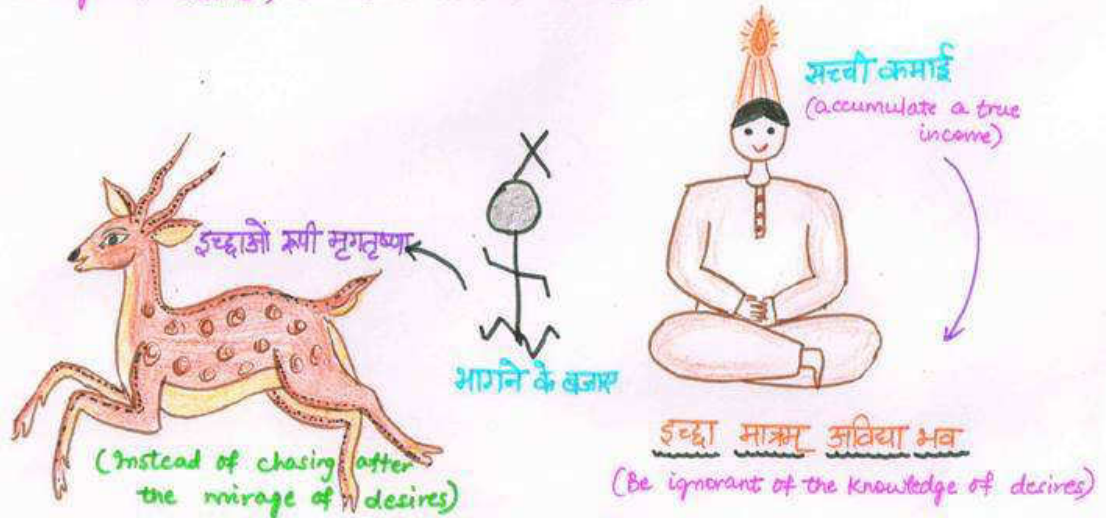 सच्ची कमाई
(accumulate a true
income)
इच्छाओं रूपी मृगतृष्णा
भागने के बजाए
(Instead of chasing after
the mirage of desires)
इच्छा मात्रम् अविद्या भव
(Be ignorant of the knowledge of desires)